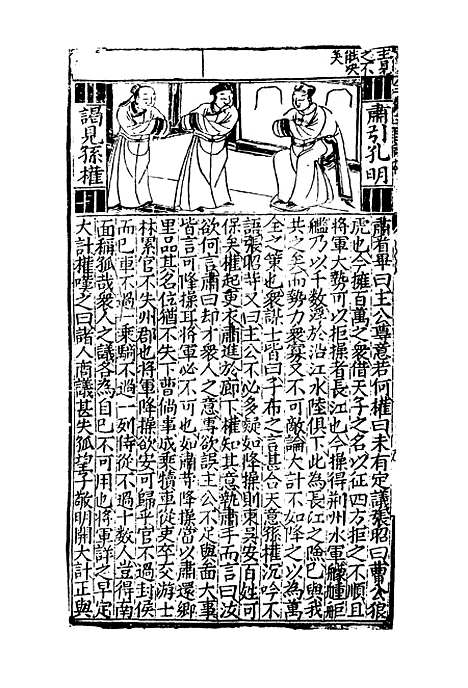 主見
之不
能㕥
矣
肅引孔明
謁見孫權
肅看畢曰主公尊意若何權曰未有定議張昭曰曹公狼
虎也今擁百萬之衆借天子之名以征四方拒之不順且
將軍大勢可以拒操者長江也今操得荊州水軍艨艟
艦乃以千數浮於沿江水陸俱下此為長江之險已與我
共之矣而勢力衆寡又不可敵論大計不如降之以為萬
全之策也衆謀士皆曰子布之言甚合天意孫權沉吟不
語張昭等又曰主公不必多疑如降操則東吳安百姓可
保矣權起更衣肅進於廊下權知其意執肅手而言曰汝
欲何言肅曰却才衆人之意專欲誤主公不足與啚大事
皆言可降操耳將軍必不可也如肅等降操當以肅還鄉
里品其名位猶不失下曹倘事成乘犢車從吏卒交游士
林累官不失州郡也將軍降操欲安可歸乎官不過封侯
而已車不過一乘騎不過一列侍從不過十數人豈得南
面稱孤哉衆人之議各為自己不可用也將軍詳之早定
大計權嘆之曰諸人商議甚失孤望子敬明開大計正與